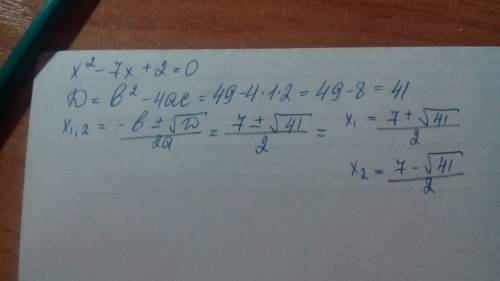 x² - 7x + 2 = 0
D = b² - 4ac = 49 - 4·1·2 = 49 - 8 = 41
x₁,₂ = (-b ± √D)/2a = (7 ± √41)/2 = x₁ = (7 + √41)/2
x₂ = (7 - √41)/2